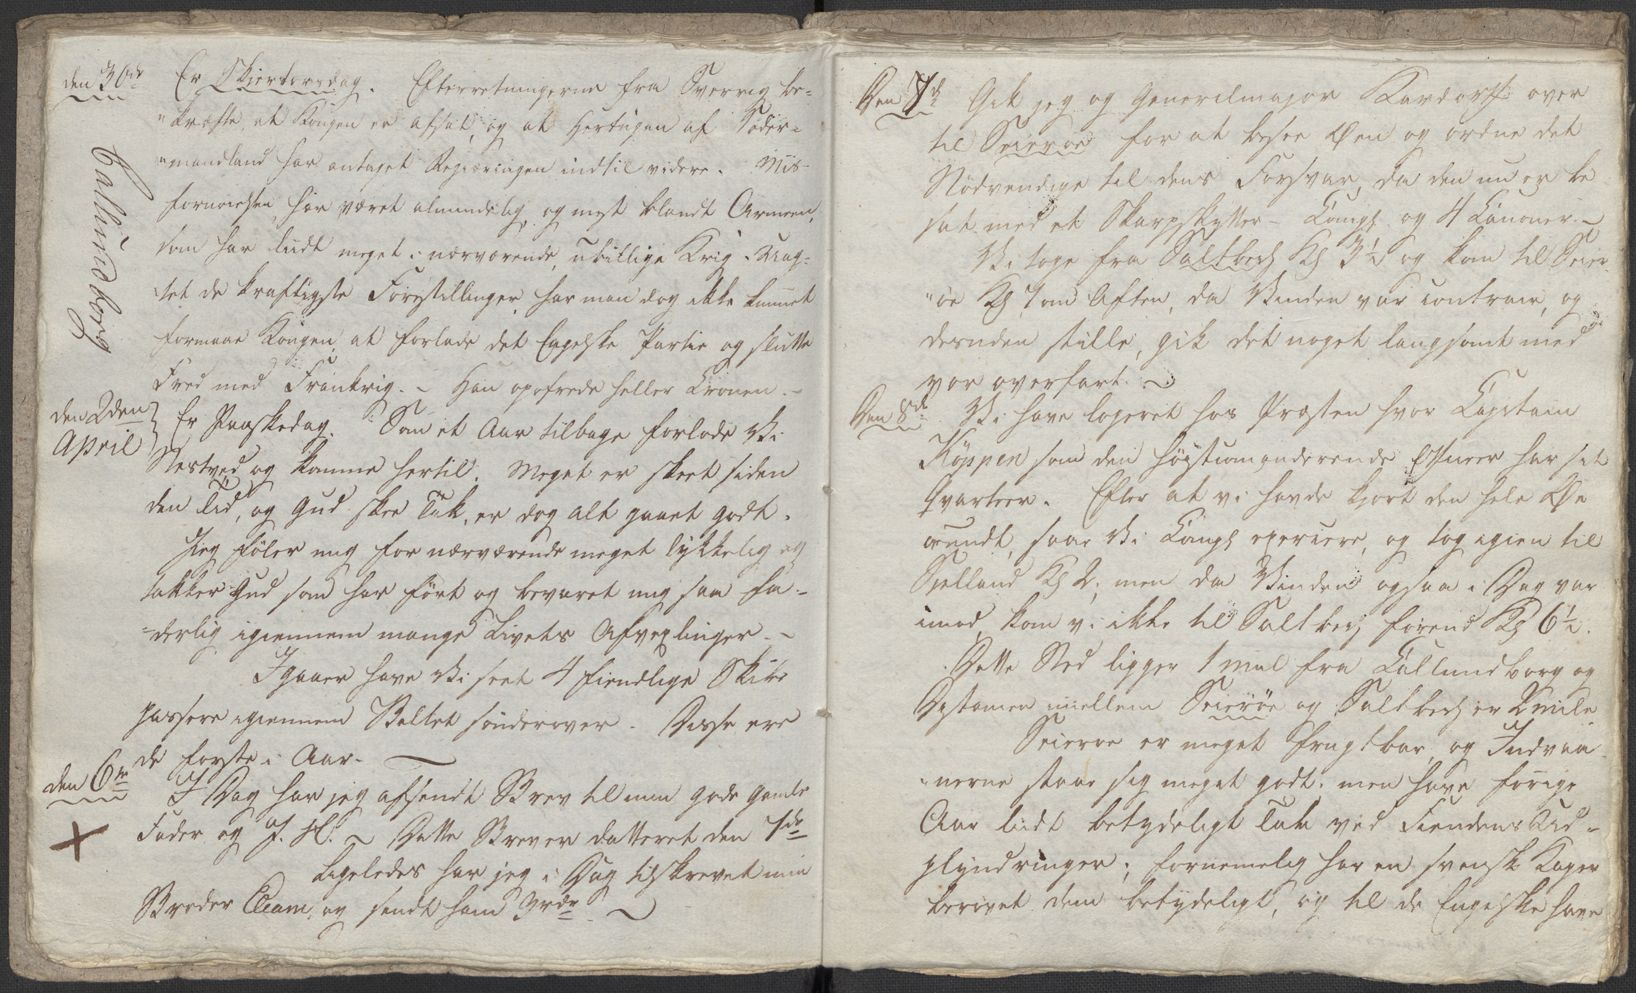 den 30de Er Skiertorsdag. Efterretningerne fra Sverrig be=
"kræfte, at Kongen er afsat, og at Hertugen af Söder=
"mandland har antaget Regieringen indtil videre. Mis=
fornøielsen har været almindelig, og mest blandt Armeen,
som har lidt meget i nærværende ubillige Krig. Uag=
tet de kraftigste Forestillinger, har man dog ikke kunnet
formaae Kongen at forlade det Engelske Partie og slutte
Fred med Frankrig. ~ Han opofrede heller Kronen. ~
Callundborg
den 2den April Er Paaskedag. Som et Aar tilbage forlode Vi
Nestved og komme hertil. Meget er skeet siden
den Tid, og Gud skee Tak, er dog alt gaaet godt.
Jeg føler mig for nærværende meget lykkelig og
takker Gud som har ført og bevaret mig saa fa=
=derlig igiennem mange Livets Afvexlinger. ~
Igaaer have Vi seet 4 fiendlige Skibe
passere igiennem Beltet sönderover. Disse ere
de første i Aar.
den 6te I Dag har jeg afsendt Brev til min gode gamle
Fader og J. H. ~ Dette Brev er datteret den 7de
Ligeledes har jeg i Dag tilskrevet min
Broder og sendt ham
Den 7de Gik jeg og Generalmajor Kardorff over
til Seierøe for at besee Øen og ordne det
Nødvendige til dens Forsvar, da den nu er be
sat med et Skarpskytter- Comp: og 4 Canoner. ~
Vi toge fra Saltbech Kl 3½ og kom til Seier
"öe Kl 7 om Aften, da Vinden var contrair, og
desuden stille, gik det noget langsomt med
vor overfart. ~
Den 8de Vi have logeret hos Præsten hvor Capitain
Köppen som den høistcomanderende Officeer har sit
Qvarteer. Efter at vi havde kjørt den hele Øe
rundt, saae Vi Comp: exercere, og tog igien til
Sielland Kl 2; men da Vinden ogsaa i Dag var
imod, kom vi ikke til Saltbech førend Kl 6½.
Dette Sted ligger 1 Miil fra Callundborg og
Distancen imellem Seierøe og Saltbech er 2 Mile
Seierøe er meget frugtbar, og Indvaa
"nerne staae sig meget godt; men have forrige
Aar lidt betydeligt Tab ved Fiendens Ud=
plyndringer; fornemelig har en svensk Kaper
berøvet dem betydeligt, og til de Engelske have